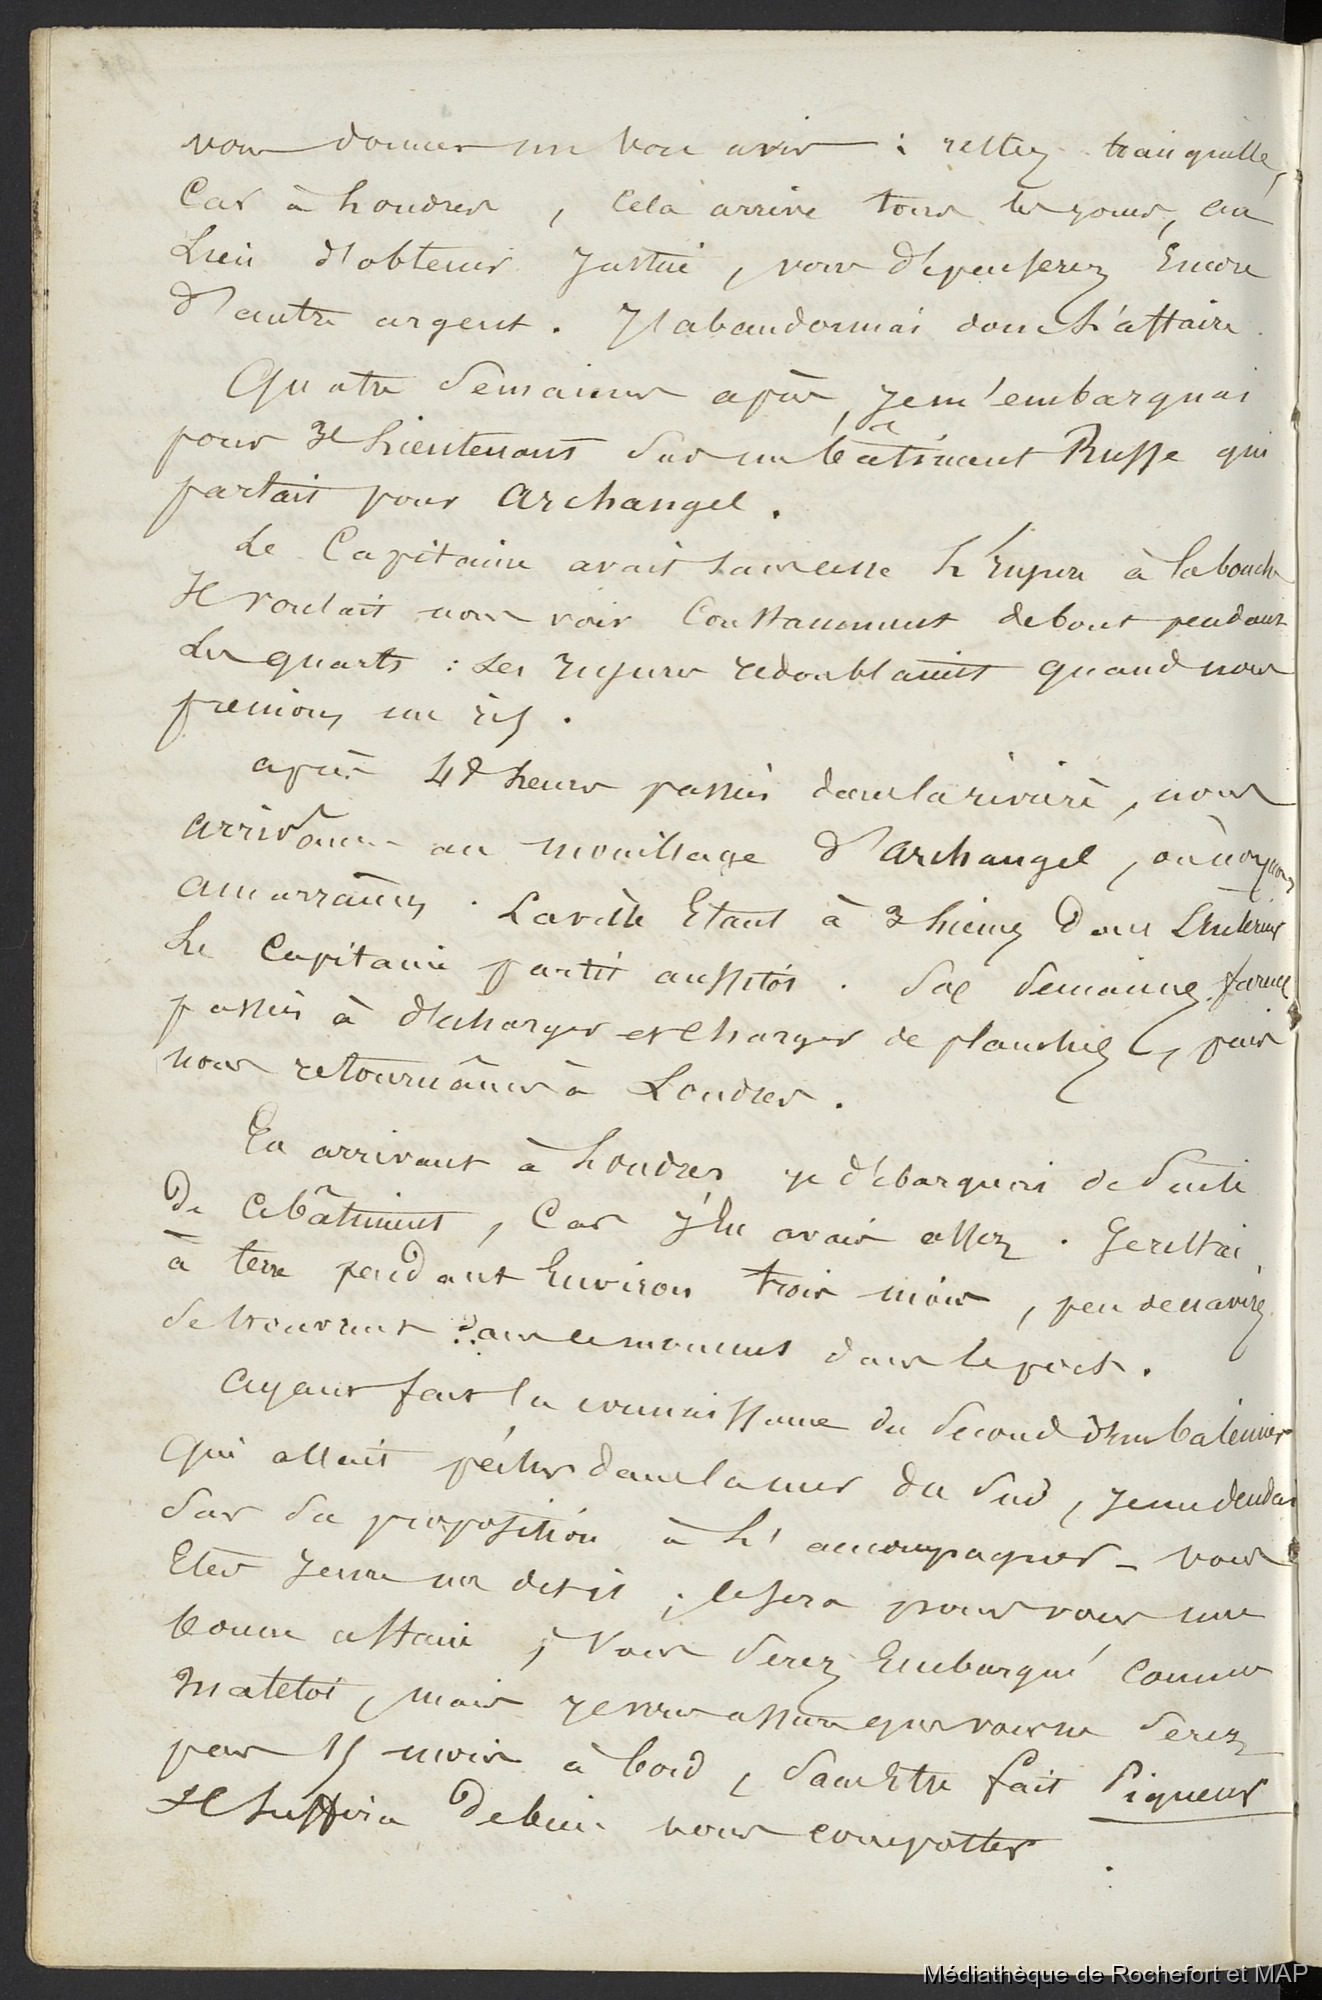 vous donner un bon avis : restez tranquille,
Car à Londres, cela arrive tous les jours, au
Lieu d'obtenir Justice, vous dépenserez Encore
d'autre argent. J'abandonnai donc L'affaire.
Quatre semaines après, Je m'embarquai
pour 3e Lieutenant sur un bâtiment Russe qui
partait pour Archangel.
Le Capitaine avait sans cesse L'Injure à la bouche
Il voulait nous voir Constamment debout pendant
Les quarts : Les Injures redoublaient quand nous
prenions un ris.
après 48 heures passées dans la rivière, nous
arrivâmes au mouillage d'Archangel, où nous
amarrâmes. La ville Etant à 3 Lieues Dans L'Intérieur
Le Capitaine partit aussitôt. Six Semaines furent
passées à décharger et Charger de planches, puis
nous retournâmes à Londres.
En arrivant à Londres je débarquai de Suite
De ce bâtiment, Car J'en avais assez. Je restai
à terre pendant Environ trois mois, peu de navires
se trouvant dans ce moment dans le port.
Ayant fait la connaissance du Second d'un baleinier
qui allait pêcher dans la mer du Sud, Je me décidai
Sur Sa proposition à L'accompagner _ vous
Etes Jeune me dit-il, ce sera pour vous une
bonne affaire ; Vous Serez Embarqué comme
Matelot, mais Je vous assure que vous ne Serez
pas 15 mois à bord, Sans Etre fait Piqueur
Il Suffira De bien vous comporter.
Médiathèque de Rochefort et MAP